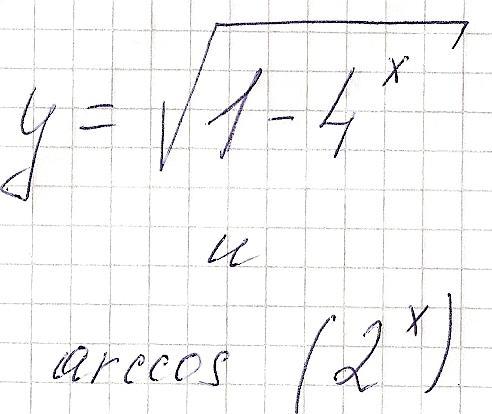 y = √(1 - 4^x)
и
arccos (2^x)